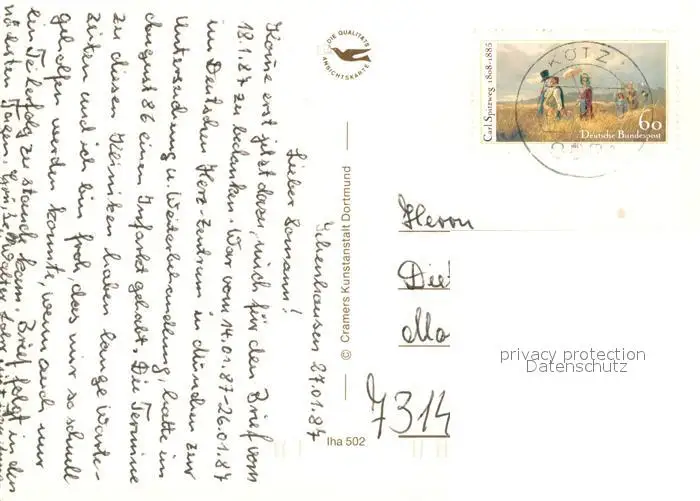 Ichenhausen 27.01.87
Lieber Somann!
Komme erst jetzt dazu, mich für den Brief vom
18.1.87 zu bedanken. War vom 14.01.87-26.01.87
im Deutschen Herz-Zentrum in München zur
Untersuchung u. Weiterbehandlung, hatte im
August 86 einen Infarkt gehabt. Die Termine
zu diesen Kliniken haben lange Warte-
zeiten und ich bin froh, das mir so schnell
geholfen werden konnte, wenn auch nur
ein Teilerfolg zu stande kam. Brief folgt in den
nächsten Tagen. Walter
DIE QUALITÄTS
ANSICHTSKARTE
© Cramers Kunstanstalt Dortmund
Iha 502
Carl Spitzweg 1808-1885
60
Deutsche Bundespost
KÖTZ
Herrn
Die
Mo
7314
privacy protection
Datenschutz